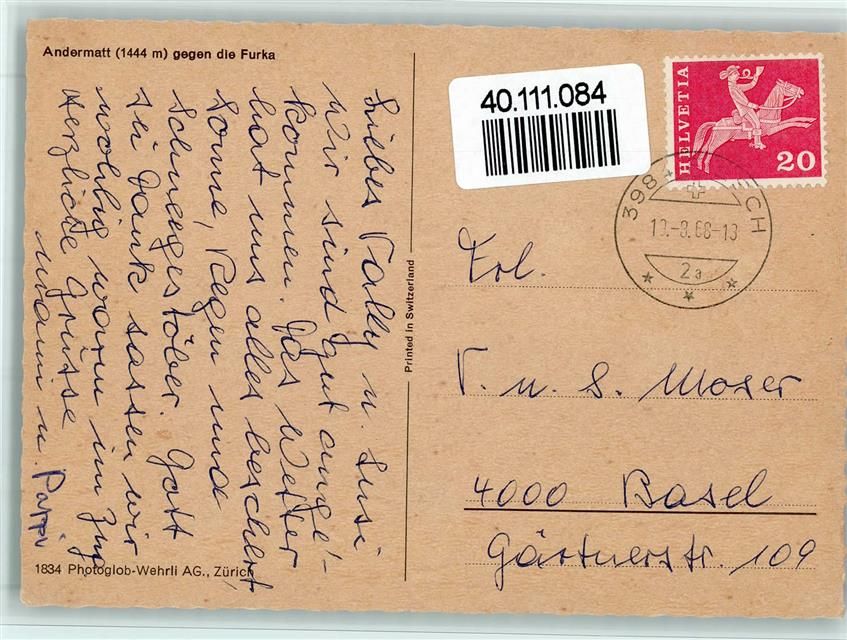 Andermatt (1444 m) gegen die Furka
Liebes Vally u. Susi
Wir sind gut ange-
kommen. Das Wetter
hat uns alles beschert
Sonne, Regen und
Schneegestöber. Gott
sei Dank sassen wir
wohlig warm im Zug
Herzliche Grüsse
Mami u. Pappi
1834 Photoglob-Wehrli AG., Zürich
Printed in Switzerland
40.111.084
HELVETIA
20
398
ECH
-8.68-13
2a
Frl.
V. u. S. Moser
4000 Basel
Gärtnerstr. 109